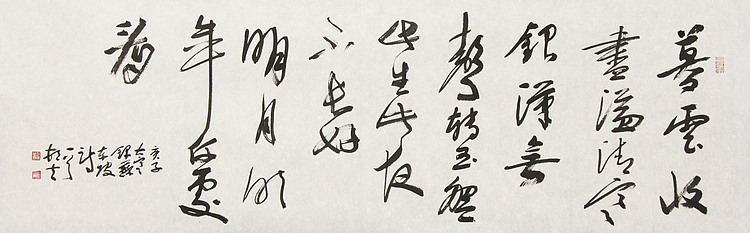 暮雲收
盡溢清寒
銀漢無
聲轉玉盤
此生此夜
不長好
明月明
年何處
看
庚子
大寒
錄蘇
東坡
詩